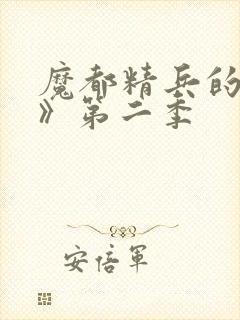 魔都精兵的
》第二季
安倍軍